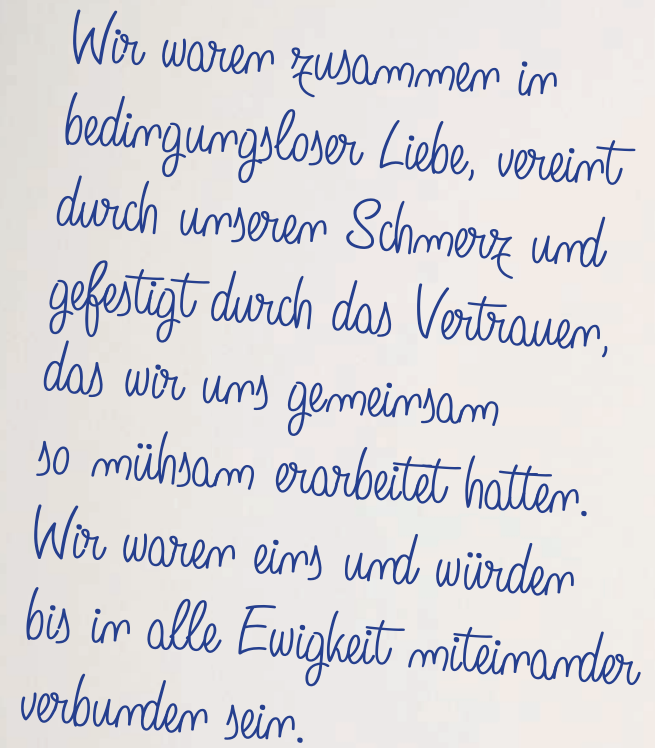 Wir waren zusammen in
bedingungsloser Liebe, vereint
durch unseren Schmerz und
gefestigt durch das Vertrauen,
das wir uns gemeinsam
so mühsam erarbeitet hatten.
Wir waren eins und würden
bis in alle Ewigkeit miteinander
verbunden sein.